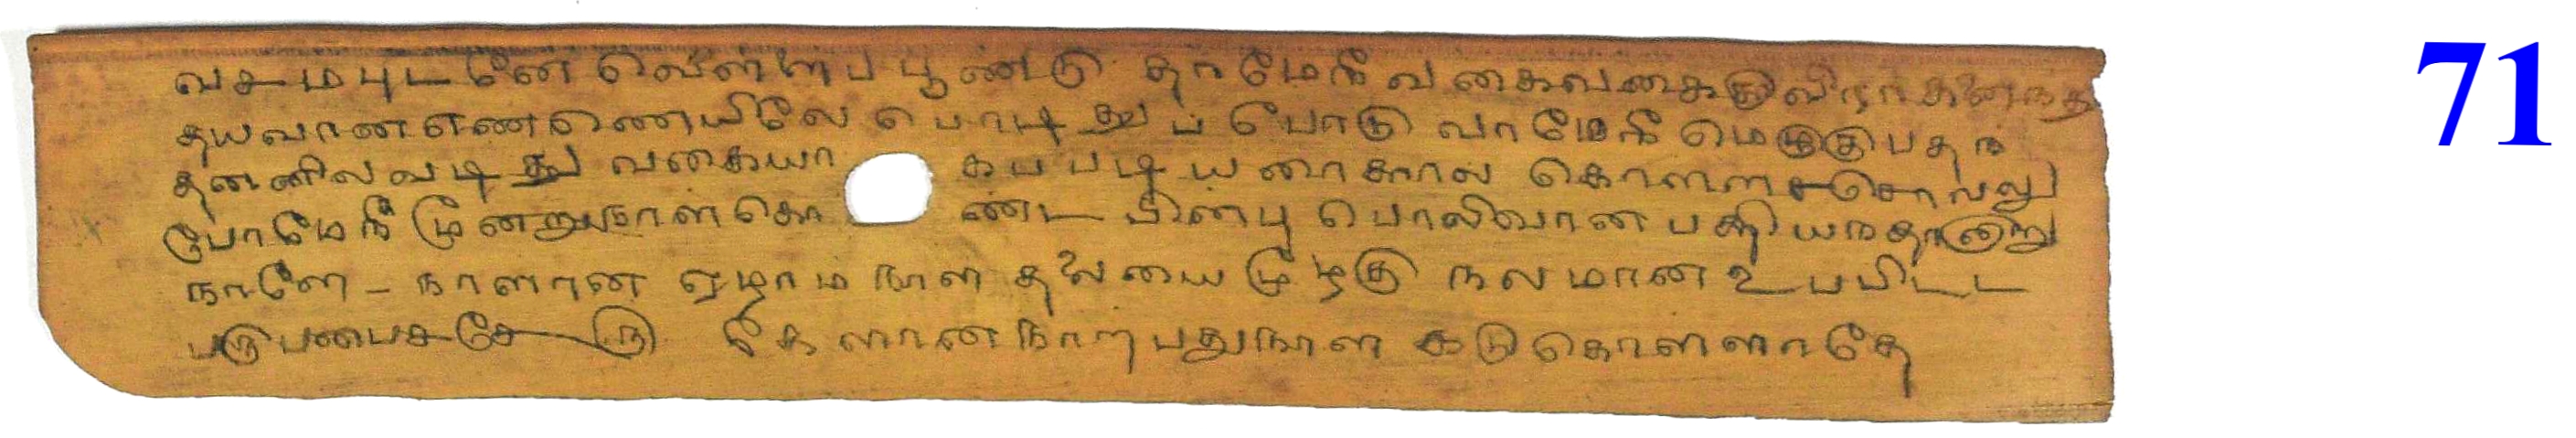 வசமபுடனே வெளளைபபூணடு தாமேநீ வகைவகைகு விராகனைநத
தயவான எணணெயிலே பொடிதுப போடு வாமேநீ மெழுகுபதந
தனனிலவடிதது வகையா கபபடியரைககால கொளளசசொலலு
போமேநீ மூனறுநாளகொ ணடபினபு பொலிவான பததியநதானறு
நாளே - நாளான ஏழாமநாள தலையை முழகு நலமான உபபிடட
பருபபைசசேரு கேளானநாறபதுநாள கடுகொளளாதே
71